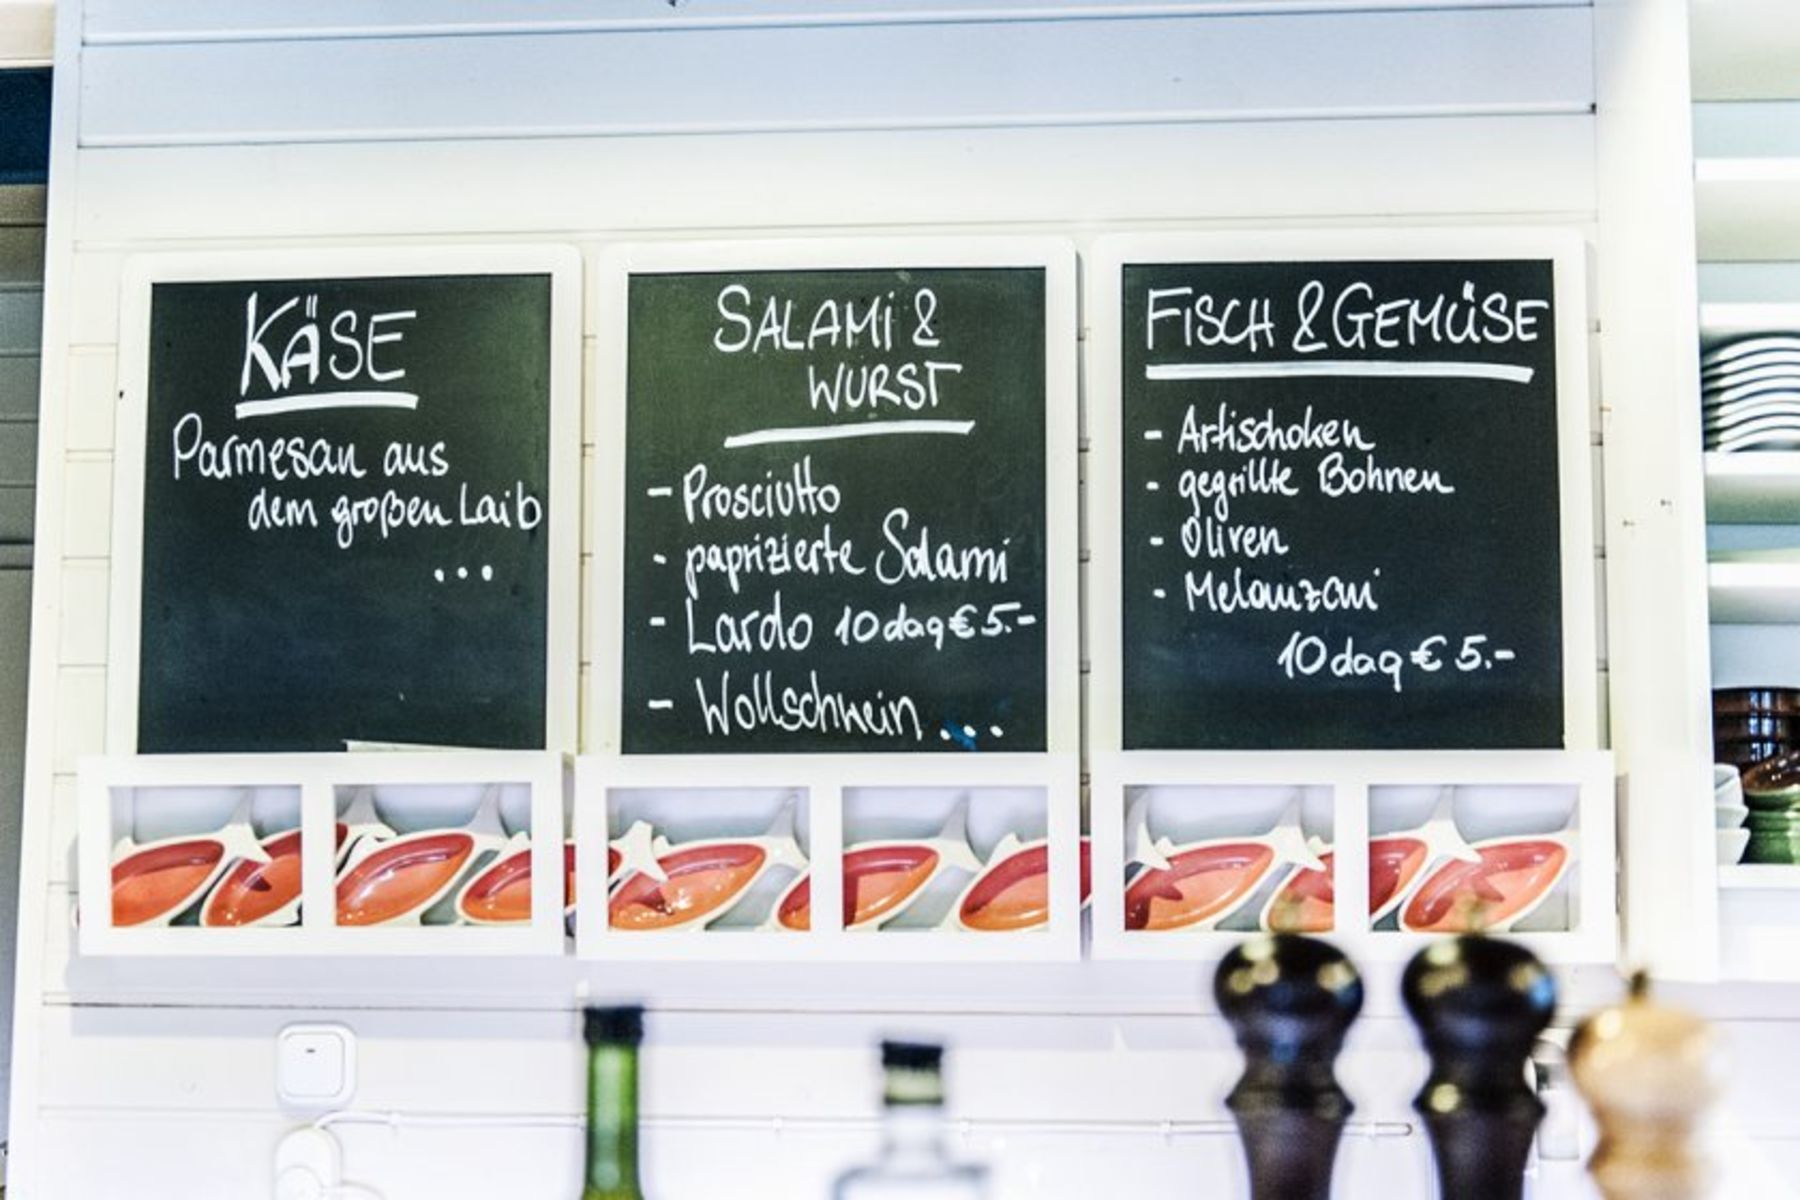 KÄSE
Parmesan aus
dem großen Laib
...
SALAMI &
WURST
- Prosciutto
- paprizierte Salami
- Lardo 10 dag € 5.-
- Wollschwein ...
FISCH & GEMÜSE
- Artischoken
- gegrillte Bohnen
- Oliven
- Melanzani
10 dag € 5.-